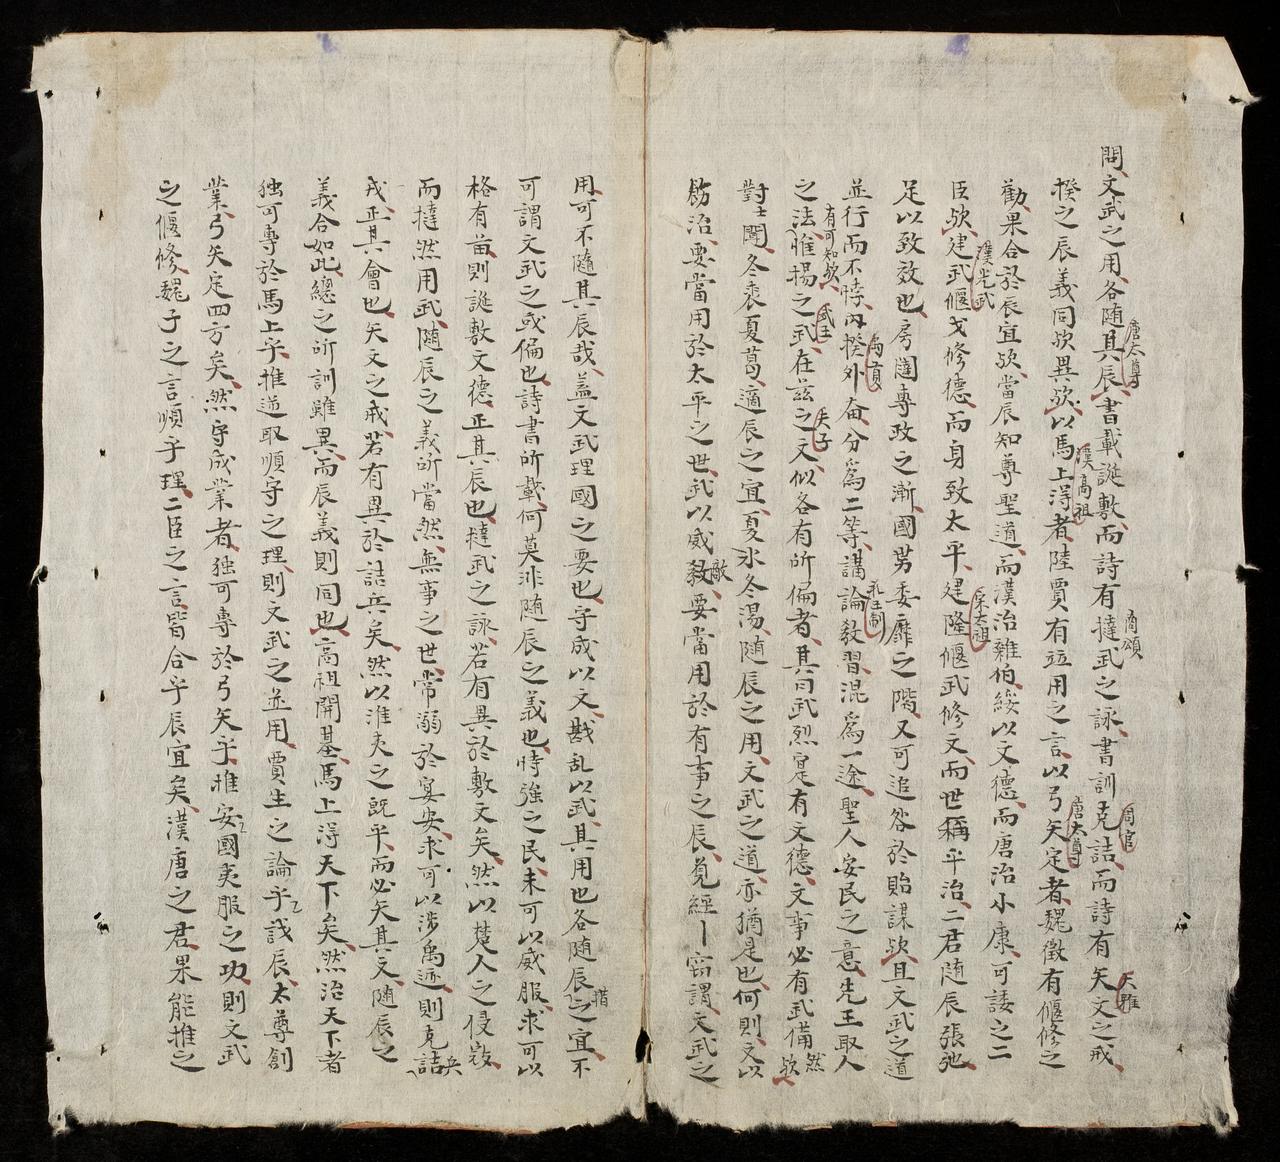 問文武之用各随其辰書載誕敷而詩有撻武之詠書訓克詰而詩有矢文之戒
唐太尊
商頌
周官
大雅
揆之辰義同欤異欤以馬上淂者陸賈有竝用之言以弓矢定者魏徵有偃修之
漢高祖
唐太尊
勸果合於辰宜欤當辰知尊聖道而漢治雜伯綏以文德而唐治小康可諉之二
臣欤建武偃戈修德而身致太平建隆偃武修文而世稱平治二君随辰張弛
漢光武
宋太祖
足以致效也房闥專政之漸國势委靡之階又可追咎於貽謀欤且文武之道
並行而不悖内揆外奋分爲二等講論教習混爲一途聖人安民之意先王取人
禹貢
王制
之法惟揚之武在茲之文似各有所偏者其曰武烈寔有文德文事必有武備然欤
有可知欤
武王
夫子
對士聞冬裘夏葛適辰之宜夏氷冬湯随辰之用文武之道亦猶是也何則文以
飭治要當用於太平之世武以威敵要當用於有事之辰覓經丨窃謂文武之
用可不随其辰哉盖文武理國之要也守成以文戡乱以武其用也各随辰措之宜不
可謂文武之或偏也詩書所載何莫非随辰之義也恃強之民未可以威服求可以
格有苗則誕敷文德正其辰也撻武之詠若有異於敷文矣然以楚人之侵敓
而撻然用武随辰之義所當然無事之世常溺於宴安求可以涉禹迹則克詰兵
戎正其會也矢文之戒若有異於詰兵矣然以淮夷之既平而必矢其文随辰之
義合如此總之所訓雖異而辰義則同也高祖開基馬上淂天下矣然治天下者
独可專於馬上乎推逆取順守之理則文武之並用賈生之論乎誠辰太尊創
業弓矢定四方矣然守成業者独可專於弓矢乎推安國夷服之功則文武
之偃修魏子之言順乎理二臣之言皆合乎辰宜矣漢唐之君果能推之